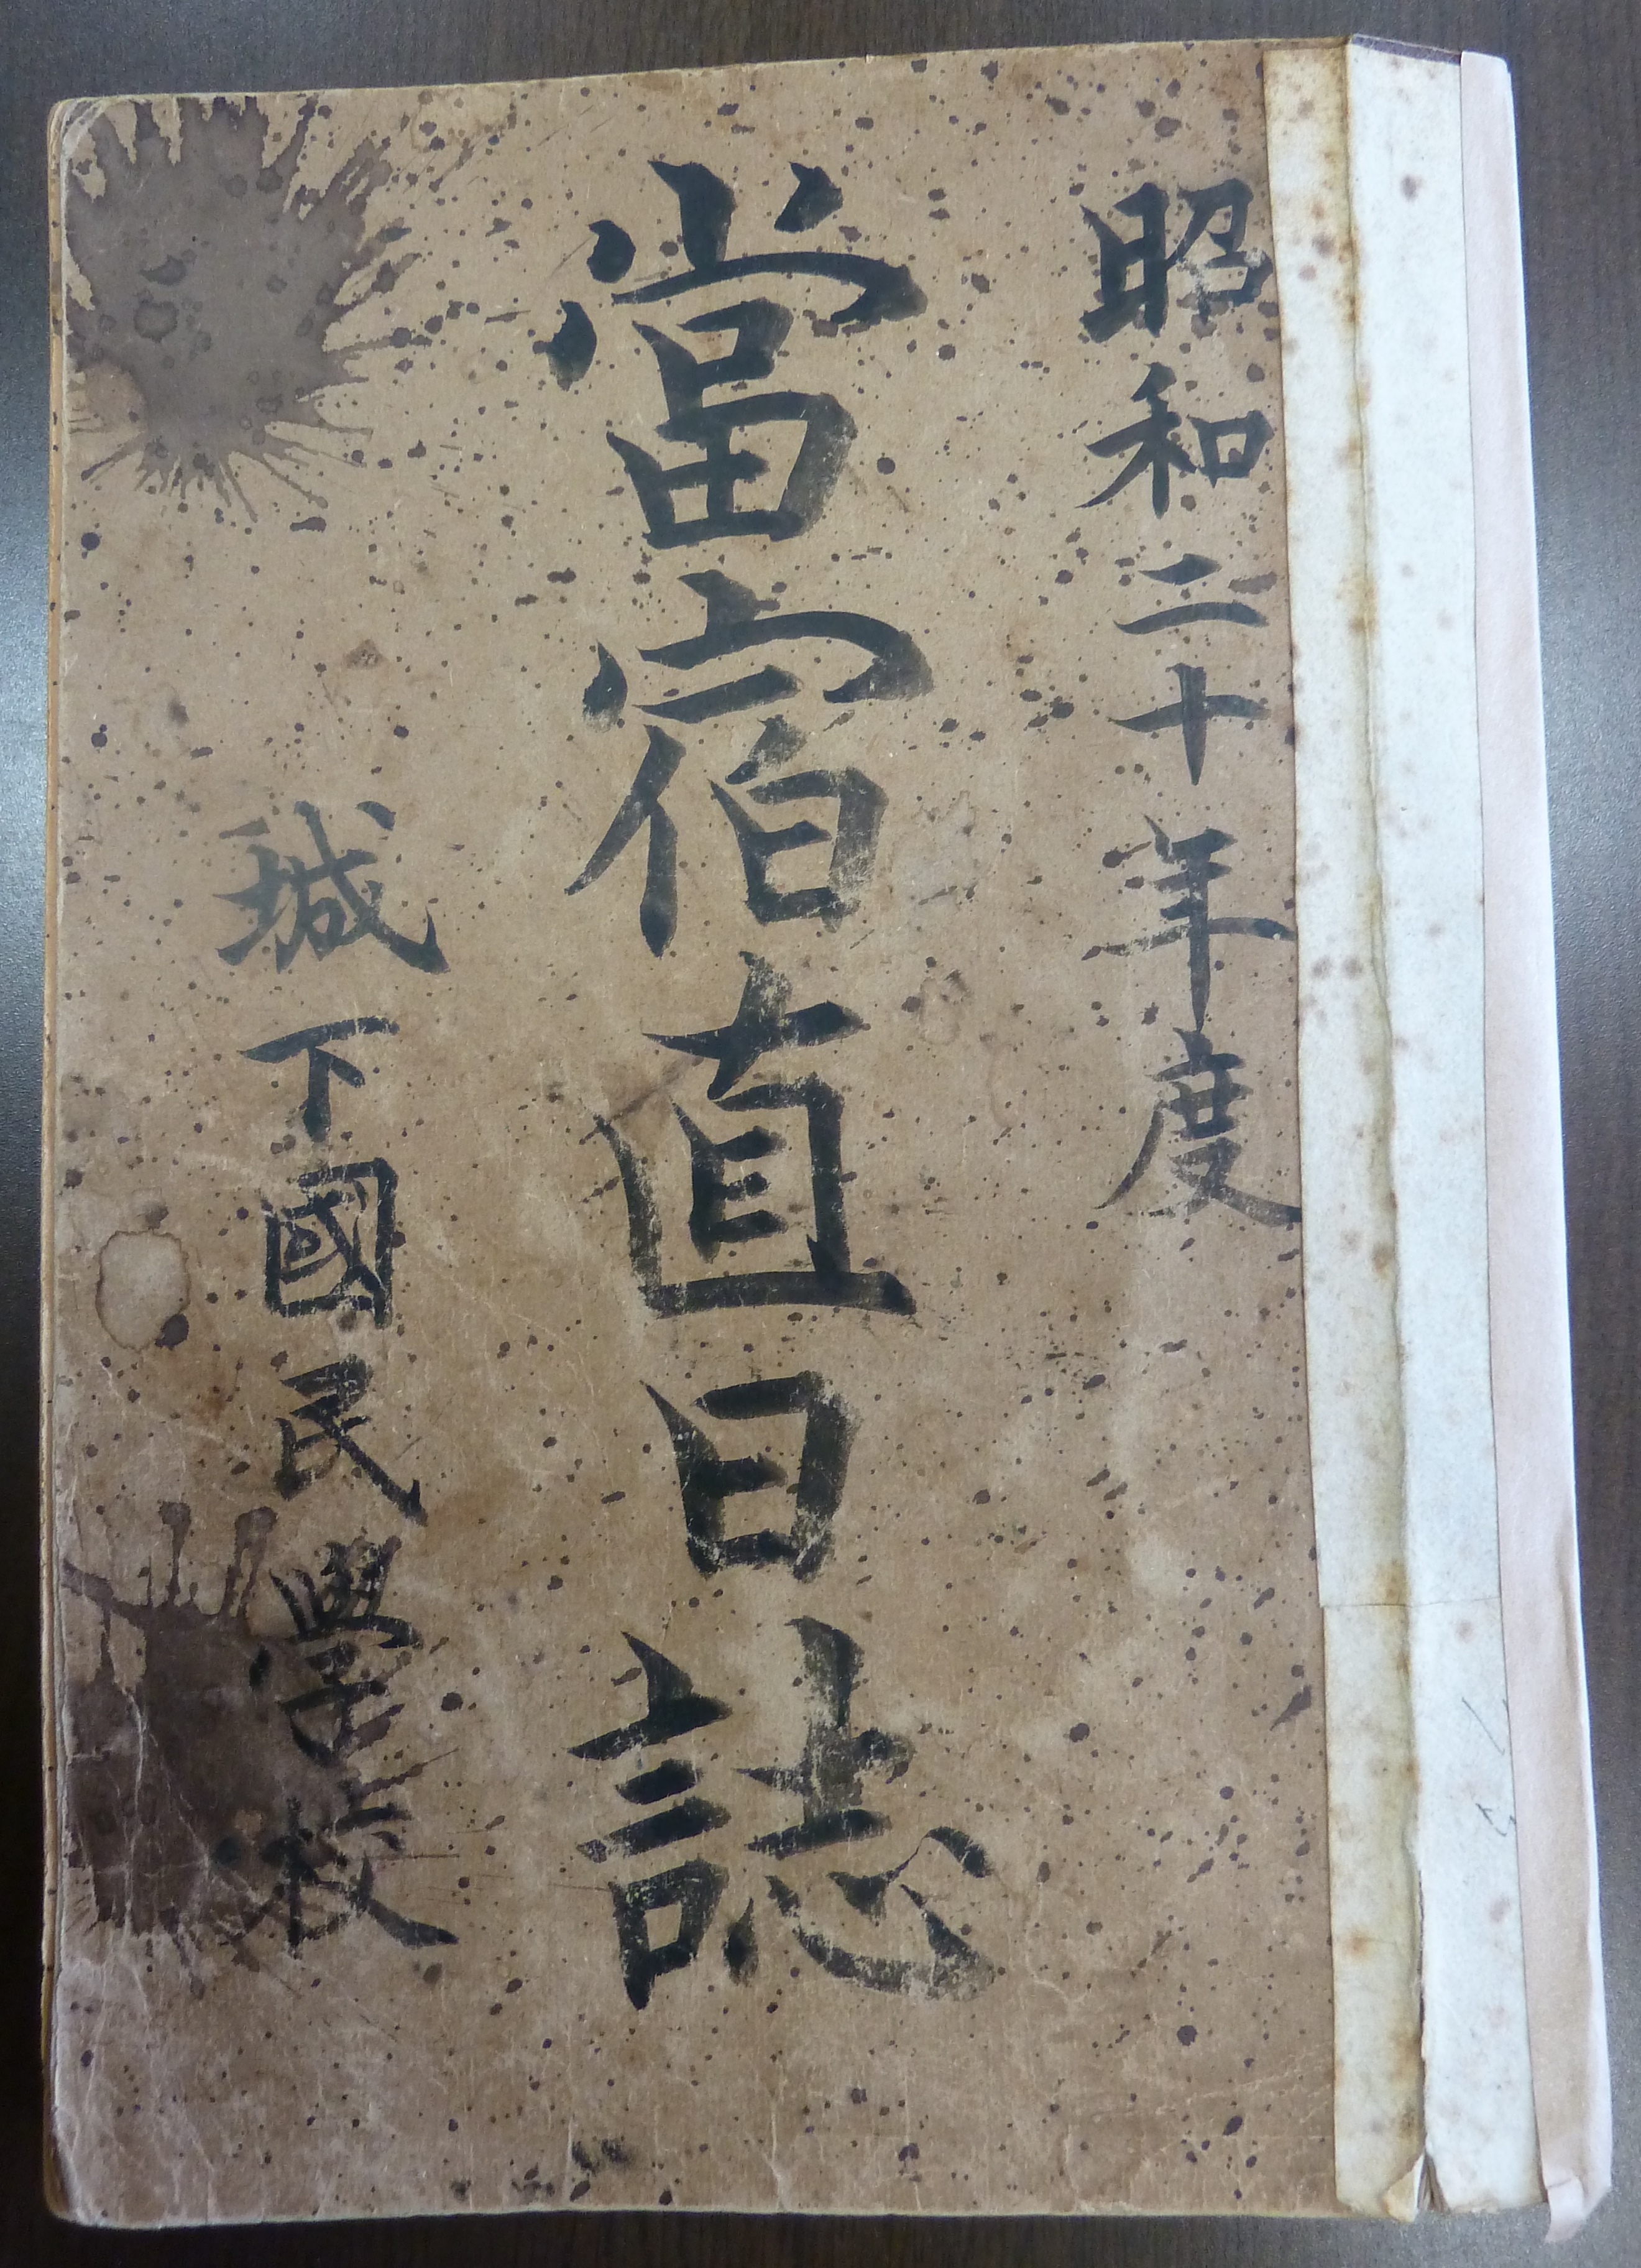 昭和二十年度
當宿直日誌
城下國民學校